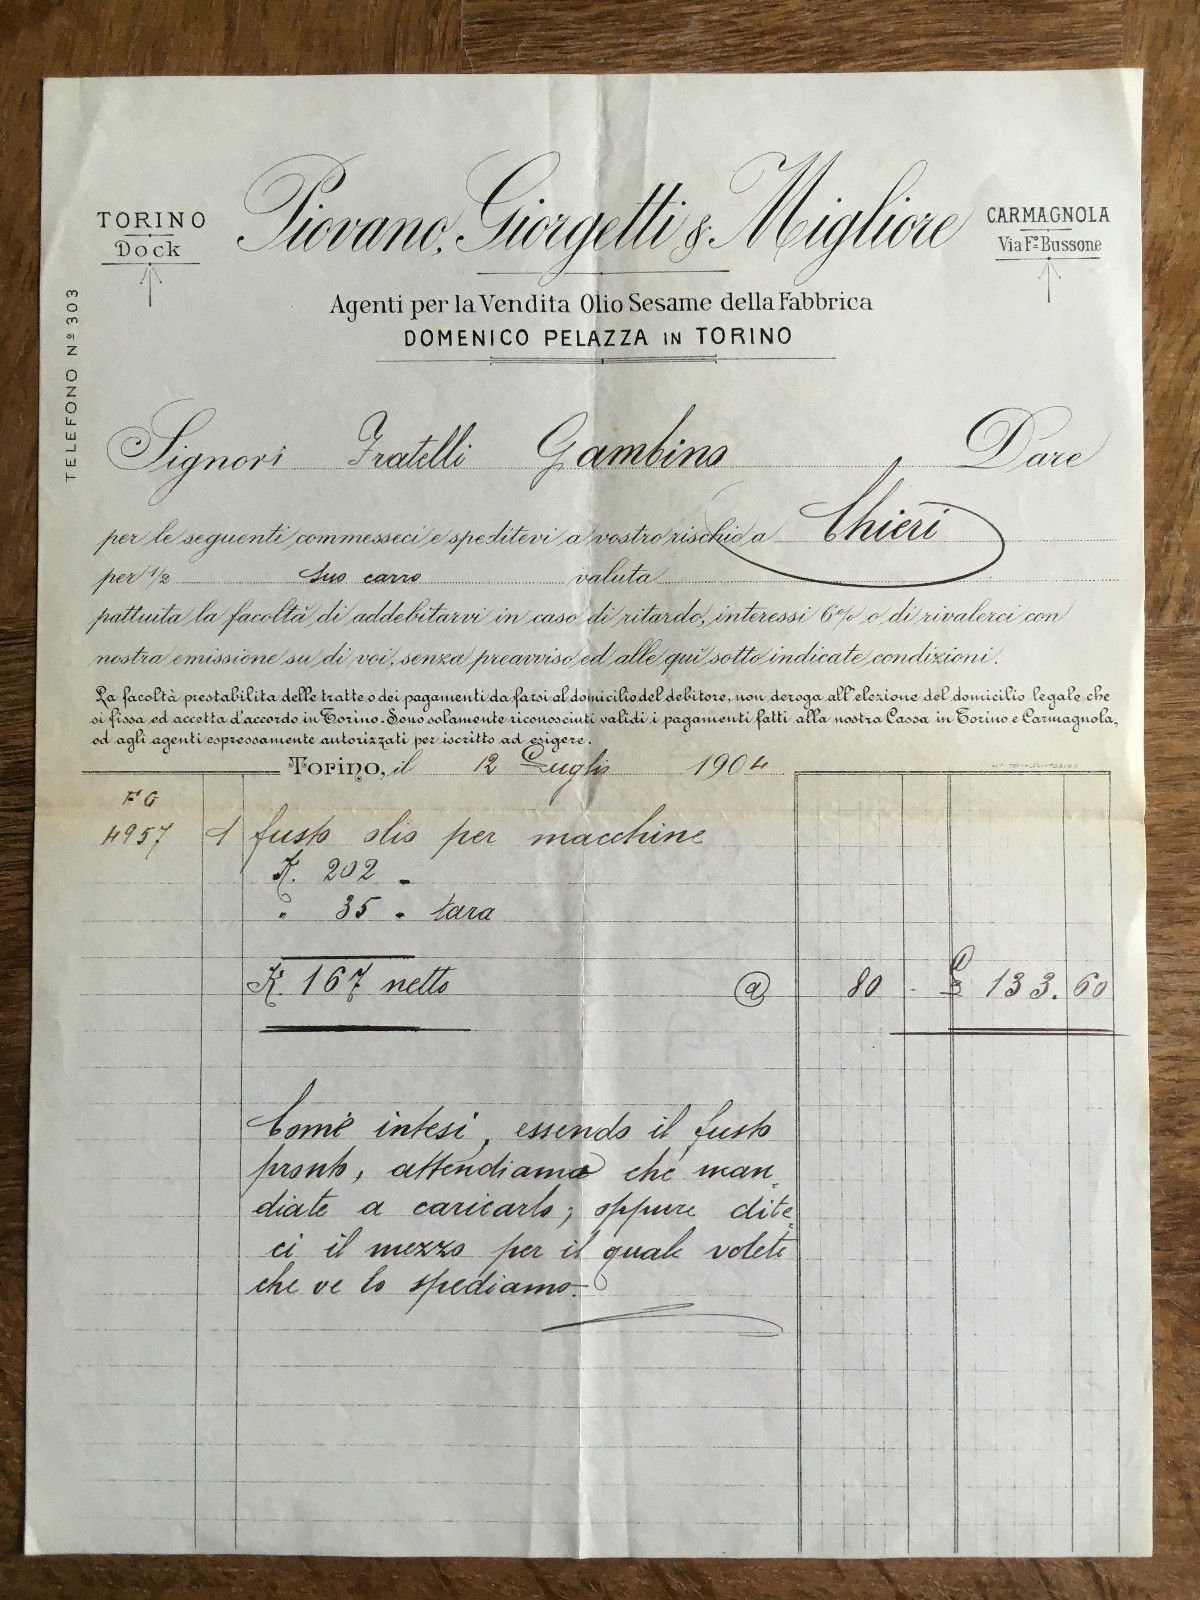 TORINO
Dock
Piovano, Giorgetti & Migliore
CARMAGNOLA
Via F.co Bussone
Agenti per la Vendita Olio Sesame della Fabbrica
DOMENICO PELAZZA IN TORINO
TELEFONO Nº 303
Signori Fratelli Gambino Dare
per le seguenti commesseci e speditevi a vostro rischio a Chieri
per ½ suo carro valuta
pattuita la facoltà di addebitarvi in caso di ritardo, interessi 6% o di rivalerci con
nostra emissione su di voi, senza preavviso ed alle qui sotto indicate condizioni.
La facoltà prestabilita delle tratte o dei pagamenti da farsi al domicilio del debitore, non deroga all'elezione del domicilio legale che
si fissa ed accetta d'accordo in Torino. Sono solamente riconosciuti validi i pagamenti fatti alla nostra Cassa in Torino e Carmagnola,
od agli agenti espressamente autorizzati per iscritto ad esigere.
Torino, il 12 Luglio 1904
FG
4957 1 fusto olio per macchine
K. 202 "
" 35 " tara
K. 167 netto @ 80 - £ 133.60
Come intesi, essendo il fusto
pronto, attendiamo che man-
diate a caricarlo; oppure dite-
ci il mezzo per il quale volete
che ve lo spediamo.